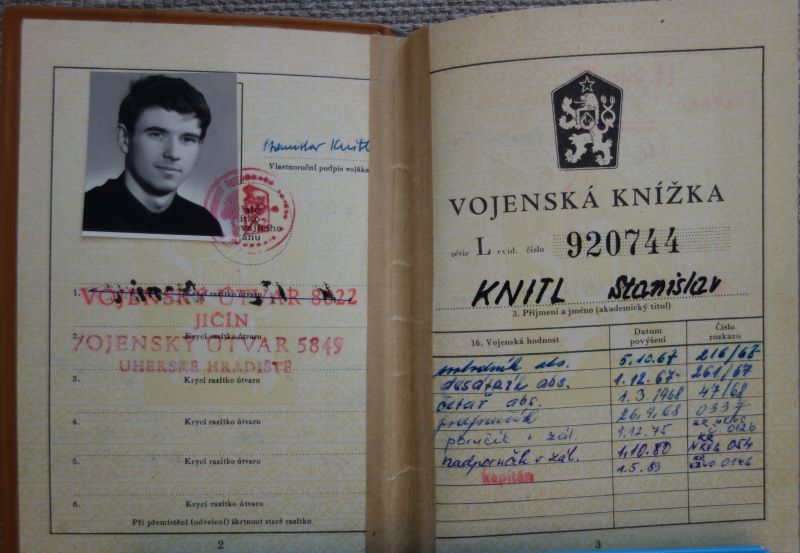 Stanislav Knitl
Vlastnoruční podpis vojáka
VOJENSKÝ ÚTVAR 8022
1. Krycí razítko útvaru
JIČÍN
2. Krycí razítko útvaru
VOJENSKÝ ÚTVAR 5849
UHERSKÉ HRADIŠTĚ
3. Krycí razítko útvaru
4. Krycí razítko útvaru
5. Krycí razítko útvaru
6. Krycí razítko útvaru
Při přemístění (odvelení) škrtnout staré razítko
2
VOJENSKÁ KNÍŽKA
série L evid. číslo 920744
KNITL Stanislav
3. Příjmení a jméno (akademický titul)
16. Vojenská hodnost Datum povýšení Číslo rozkazu
svobodník abs. 5.10.67 216/67
desátník abs. 1.12.67 261/67
četař abs. 1.3.1968 47/68
podporučík 26.9.68 0337
poručík v zál. 1.12.75 č. 0126
nadporučík v zál. 1.10.80 054
kapitán 1.5.89 0146
3